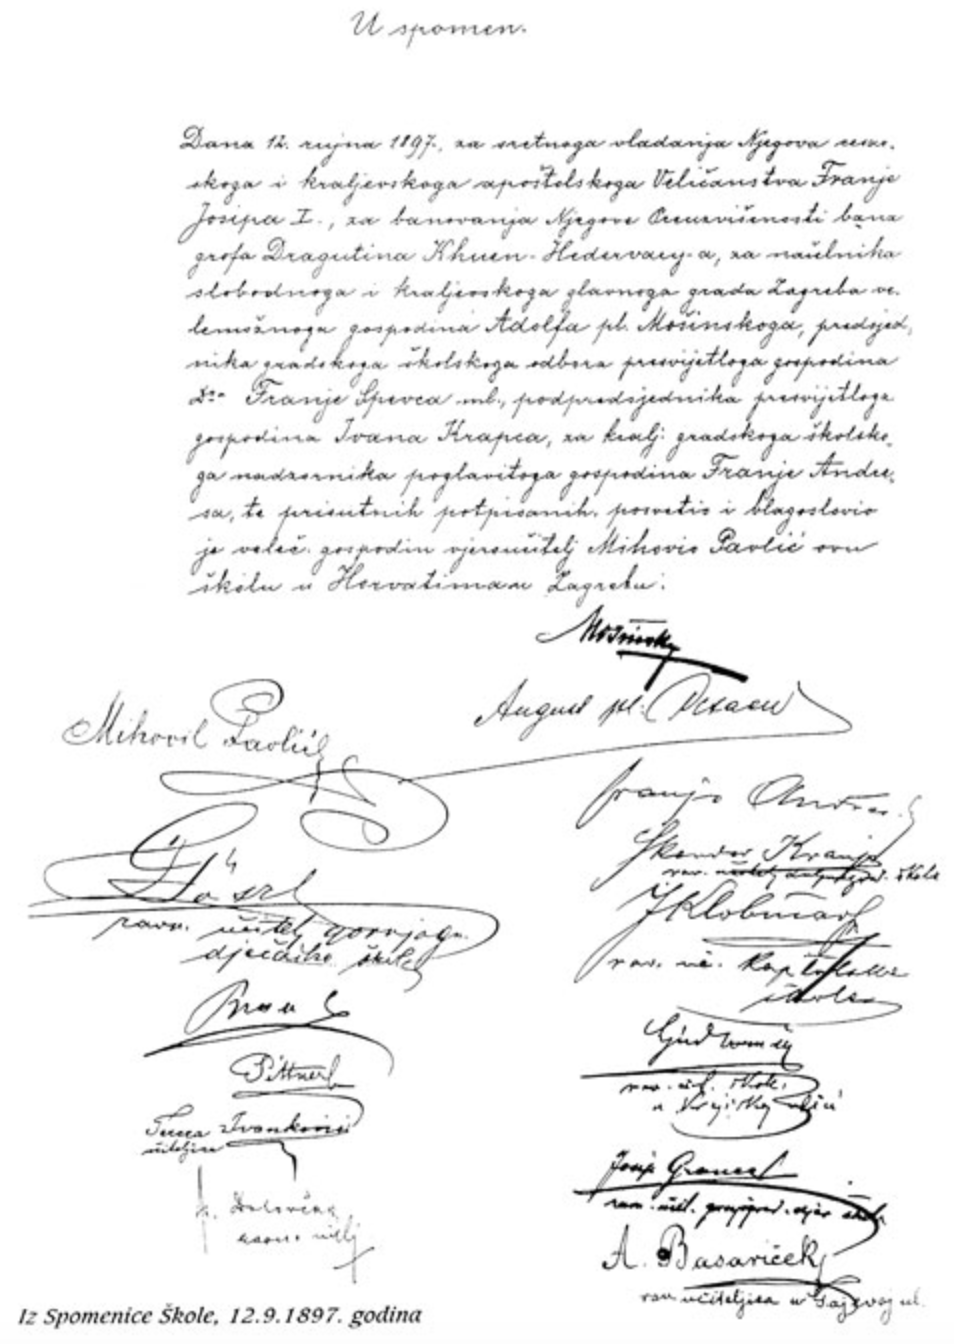 U spomen.
Dana 12. rujna 1897., za sretnoga vladanja Njegova cesar-
skoga i kraljevskoga apoštolskoga Veličanstva Franje
Josipa I., za banovanja Njegove Preuzvišenosti bana
grofa Dragutina Khuen-Hedervary-a, za načelnika
slobodnoga i kraljevskoga glavnoga grada Zagreba ve-
lemožnoga gospodina Adolfa pl. Mošinskoga, predsjed-
nika gradskoga školskoga odbora presvijetloga gospodina
Dr. Franje Spevca ml., podpredsjednika presvijetloga
gospodina Ivana Krapca, za kralj. gradskoga školsko-
ga nadzornika poglavitoga gospodina Franje Andre-
sa, te prisutnih potpisanih, posvetio i blagoslovio
je veleč. gospodin vjeroučitelj Mihovio Pavlić ovu
školu u Horvatima u Zagrebu.
Mošinsky
August pl.
Mihovil Pavlić
Franjo
Kranjc
rav. učitelj škole
JKlobučar
ravn. učitelj
dječačke škole
rav. uč. kaptolske
škole
Pittner
rav. uč. škole
u
Tereza Ivanković
učiteljica
Josip
rav. učit. škole
ravn. učitelj
A. Basariček
rav učiteljica u Gajevoj ul.
Iz Spomenice Škole, 12.9.1897. godina